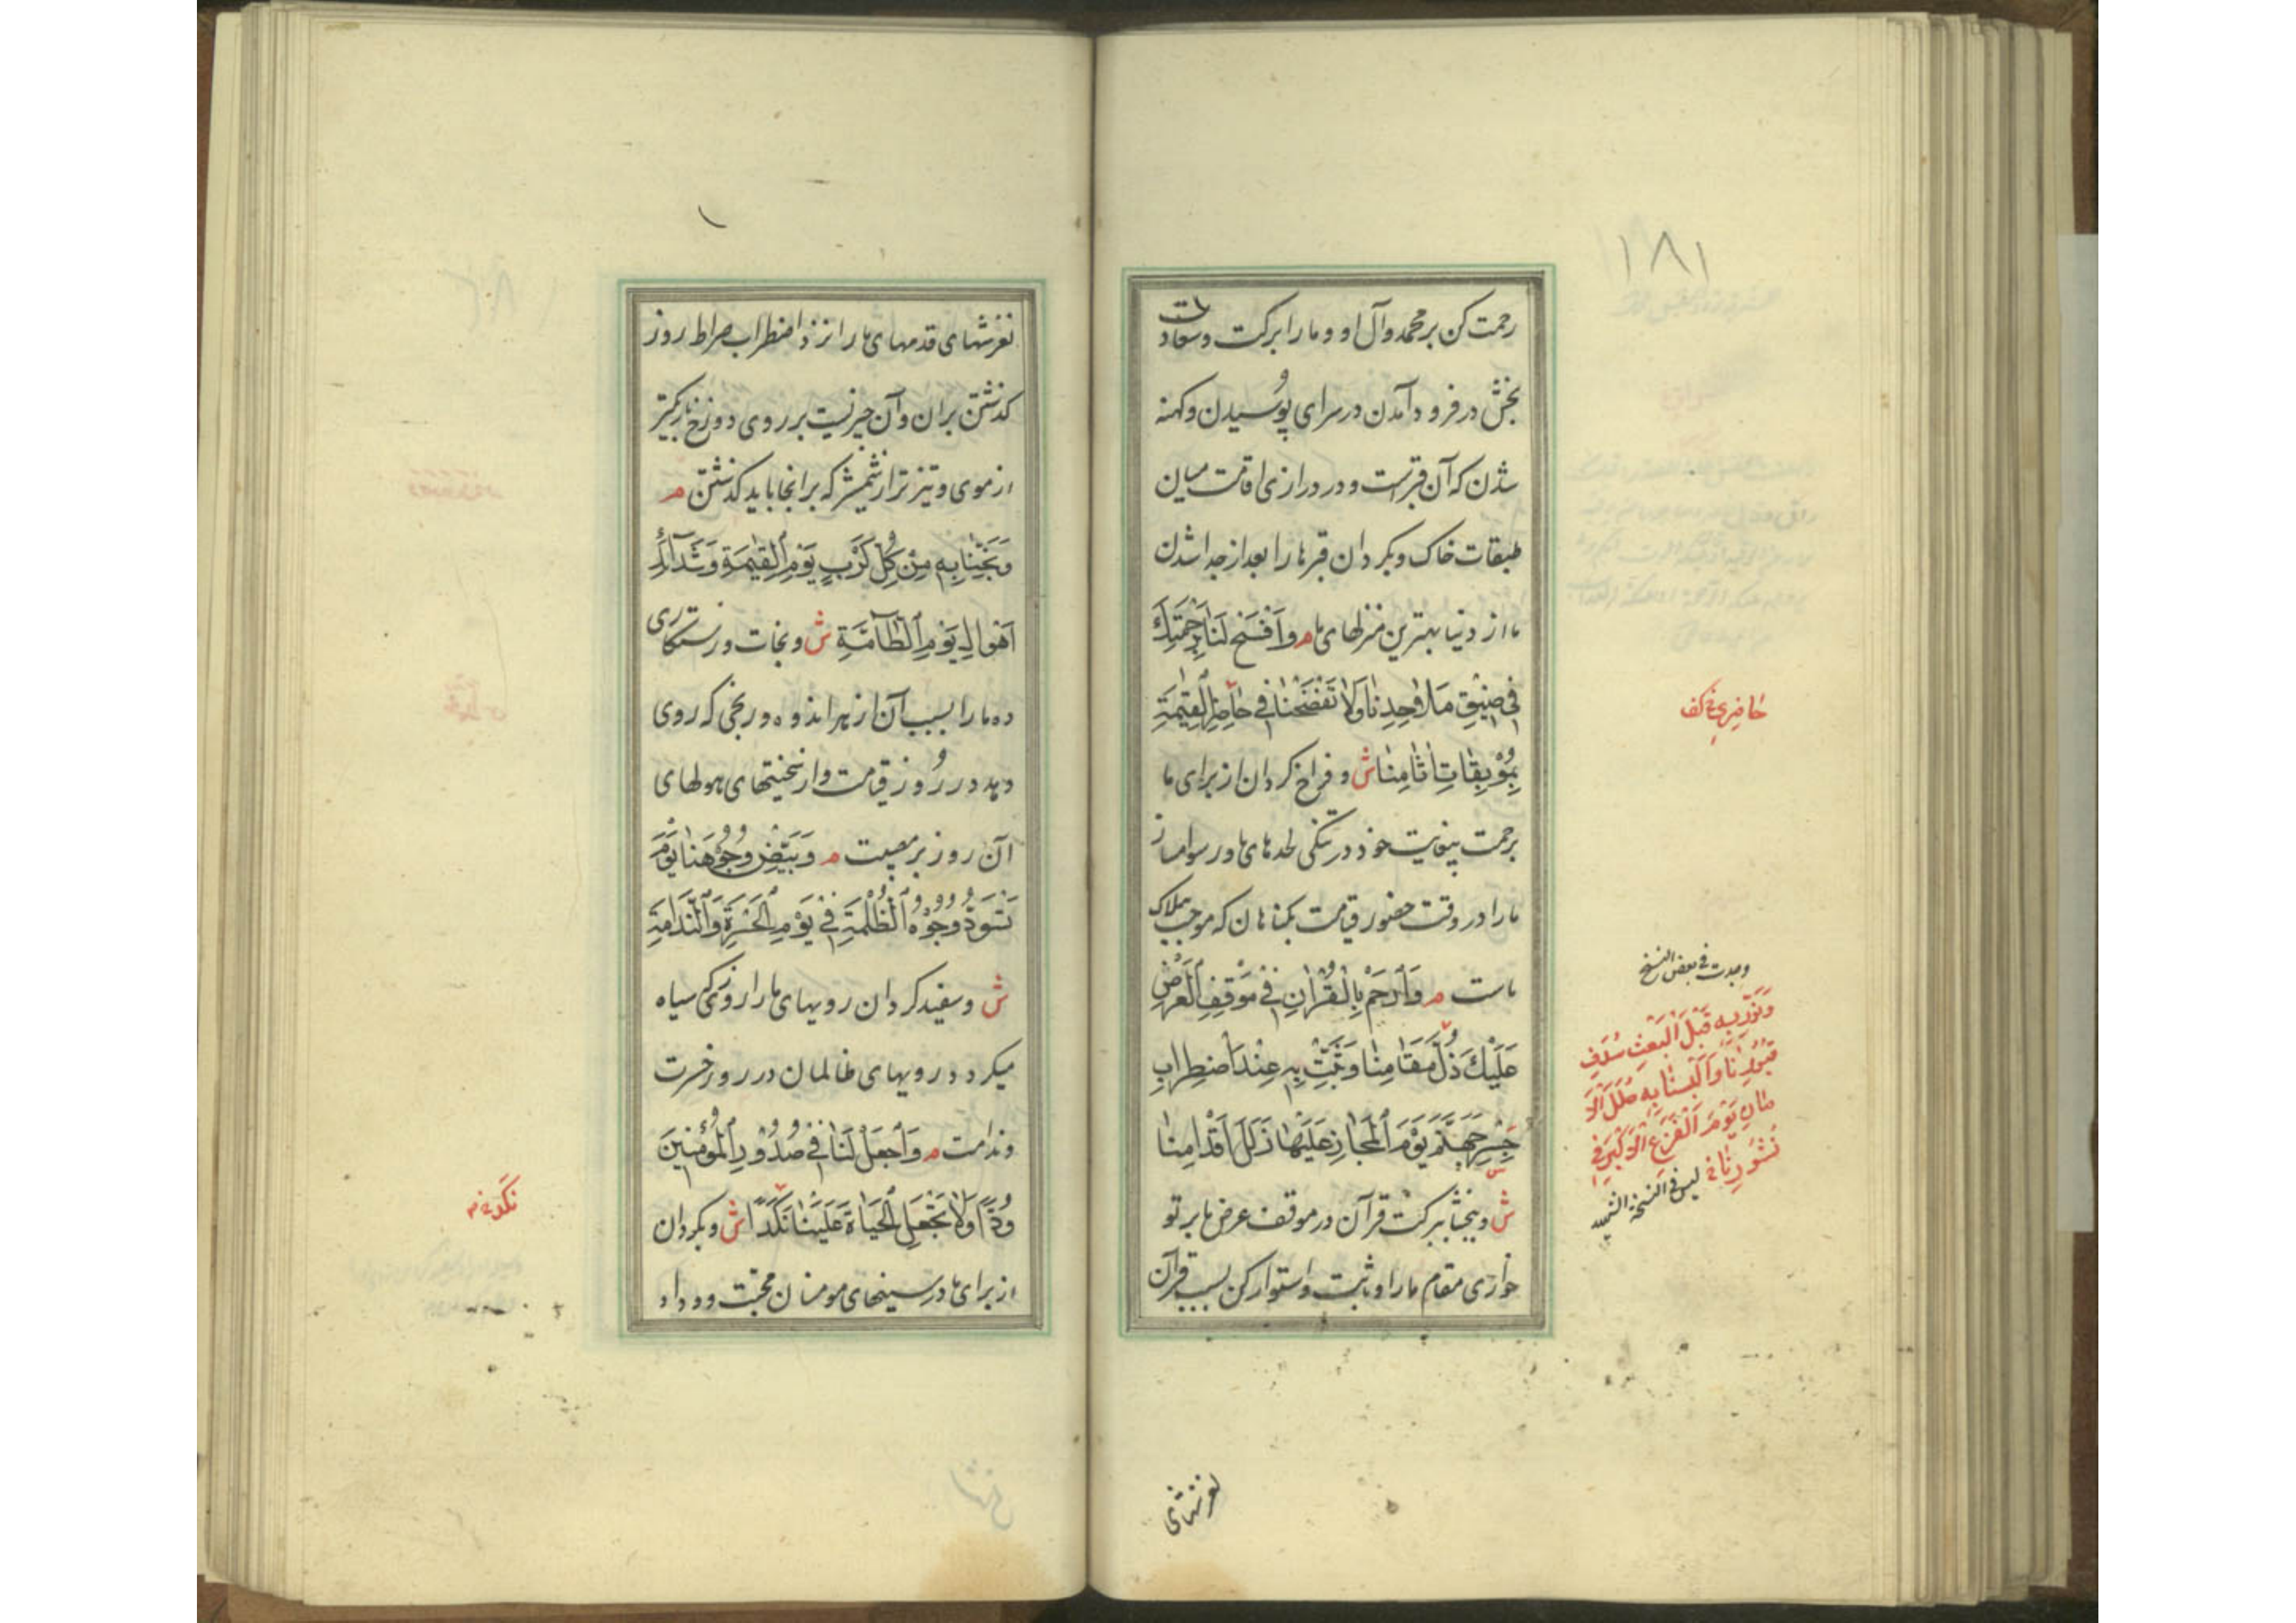 ۱۸۱
رحمت کن بر محمد وآل او و ما را برکت وسعادت
بخش در فرود آمدن در سرای پوُسیدن وکهنه
شدن که آن قبرست و در درازی اقامت میان
طبقات خاک وبکردان قبرها را بعد از جدا شدن
ما از دنیا بهترین منزلهای ما م وَاَفْسَحْ لَنَا بِرَحْمَتِكَ
فى ضيٖقِ مَلَاحِدِنَا وَلَا تَفْضَحْنَا فى حَاضِرِ الْقِيٰمَةِ
بِمُوْبِقَاتِ اٰثَامِنَا ش و فراخ کردان از برای ما
برحمت بینهایت خود در تنکی لحدهای ما و رسوا مساز
ما را در وقت حضور قیامت بکناهان که موجب هلاک
ماست م وَاْرْحَمْ بِالْقُرْاٰنِ فى مَوْقِفِ الْعَرْضِ
عَلَيْكَ ذُلَّ مَقَامِنَا وَثَبِّتْ بِهِ عِنْدَ اْضْطِرَابِ
جِسْرِ جَهَنَّمَ يَوْمَ الْمَجَازِ عَلَيْهَا زَلَلَ اَقْدَامِنَا
ش وببخشا ببرکت قرآن در موقف عرض ما بر تو
خواری مقام ما را و ثابت واستوار کن بسبب قرآن
حاضرى خ كف
وجدت فى بعض النسخ
وَنَوِّرْ بِهِ قَبْلَ الْبَعْثِ سُدَفَ
قُبُوْرِنَا وَاَلْبِسْنَا بِهِ حُلَلَ الْاَ
مَانِ يَوْمَ الْفَزَعِ الْاَكْبَرِ فى
نُشُوْرِنَا خ ليس فى النسخة الشهيد
لغزشهای
لغزشهای قدمهای ما را نزد اضطراب صراط روز
کذشتن بران وآن چیزیست بر روی دوزخ باریکتر
از موی وتیزتر از شمشیر که برانجا باید کذشتن م
وَنَجِّنَا بِهِ مِنْ كُلِّ كَرْبٍ يَوْمَ الْقِيٰمَةِ وَشَدَآئِدِ
اَهْوَالِ يَوْمِ الْطَّآمَّةِ ش ونجات ورستکاری
ده ما را بسبب آن از هر اندوه ورنجی که روی
دهد در روُز قیامت واز سختیهای هولهای
آن روز پر مصیبت م وَبَيِّضْ وُجُوْهَنَا يَوْمَ
تَسْوَدُّ وُجُوْهُ الْظَّلَمَةِ فى يَوْمِ الْحَسْرَةِ وَالْنَّدَامَةِ
ش وسفید کردان رویهای ما را روزی که سیاه
میکردد رویهای ظالمان در روز حسرت
وندامت م وَاْجْعَلْ لَنَا فى صُدُوْرِ الْمُؤْمِنِيْنَ
وُدًّا وَلَا تَجْعَلِ الْحَيَاةَ عَلَيْنَا نَكَدًا ش وبکردان
از برای ما در سینهای مومنان محبت و وداد